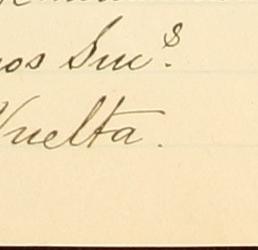 os Suc.s
Vuelta.